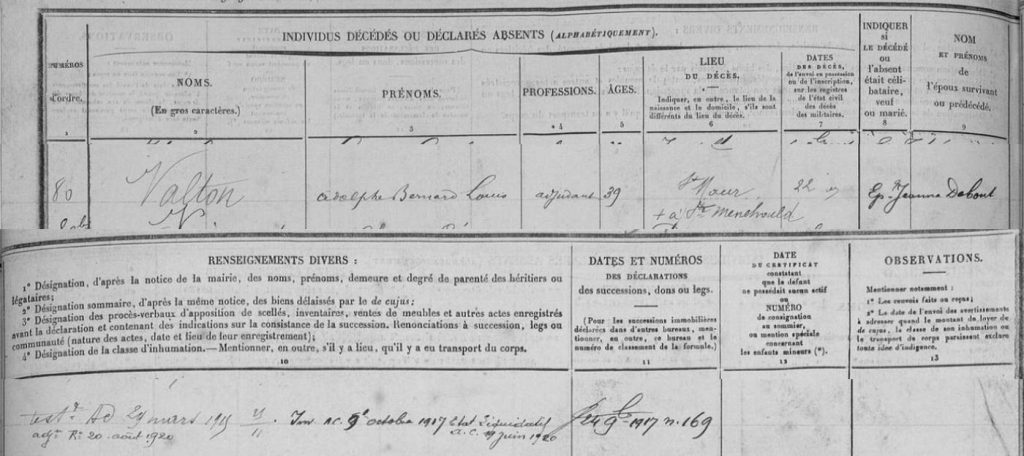 INDIVIDUS DÉCÉDÉS OU DÉCLARÉS ABSENTS (ALPHABÉTIQUEMENT).
NUMÉROS
d'ordre.
1
NOMS.
(En gros caractères.)
2
PRÉNOMS.
3
PROFESSIONS.
4
ÂGES.
5
LIEU
DU DÉCÈS.
Indiquer, en outre, le lieu de la
naissance et le domicile, s'ils sont
différents du lieu du décès.
6
DATES
DES DÉCÈS,
de l'envoi en possession
ou de l'inscription,
sur les registres
de l'état civil
des décès
des militaires.
7
INDIQUER
si
LE DÉCÉDÉ
ou
l'absent
était céli-
bataire,
veuf
ou marié.
8
NOM
ET PRÉNOMS
de
l'époux survivant
ou prédécédé.
9
80
Valton
Adolphe Bernard Louis
adjudant
39
St Maur
+ à Ste Menehould
22
Ep. Jeanne Debout
RENSEIGNEMENTS DIVERS :
1° Désignation, d'après la notice de la mairie, des noms, prénoms, demeure et degré de parenté des héritiers ou
légataires;
2° Désignation sommaire, d'après la même notice, des biens délaissés par le de cujus;
3° Désignation des procès-verbaux d'apposition de scellés, inventaires, ventes de meubles et autres actes enregistrés
avant la déclaration et contenant des indications sur la consistance de la succession. Renonciations à succession, legs ou
communauté (nature des actes, date et lieu de leur enregistrement);
4° Désignation de la classe d'inhumation. — Mentionner, en outre, s'il y a lieu, qu'il y a eu transport du corps.
10
DATES ET NUMÉROS
DES DÉCLARATIONS
des successions, dons ou legs.
(Pour les successions immobilières
déclarées dans d'autres bureaux, men-
tionner, en outre, ce bureau et le
numéro de classement de la formule.)
11
DATE
DU CERTIFICAT
constatant
que le défunt
ne possédait aucun actif
ou
NUMÉRO
de consignation
au sommier,
ou mention spéciale
concernant
les enfants mineurs (*).
12
OBSERVATIONS.
Mentionner notamment :
1° Les renvois faits ou reçus;
2° La date de l'envoi des avertissements
à adresser quand le montant du loyer de
de cujus, la classe de son inhumation ou
le transport de corps paraissent exclure
toute idée d'indigence.
13
29 mars 1915
Inv. A.C. 9 octobre 1917 Etat Liquidatif
20 août 1920
A.C. 19 juin 1920
1917 n. 169